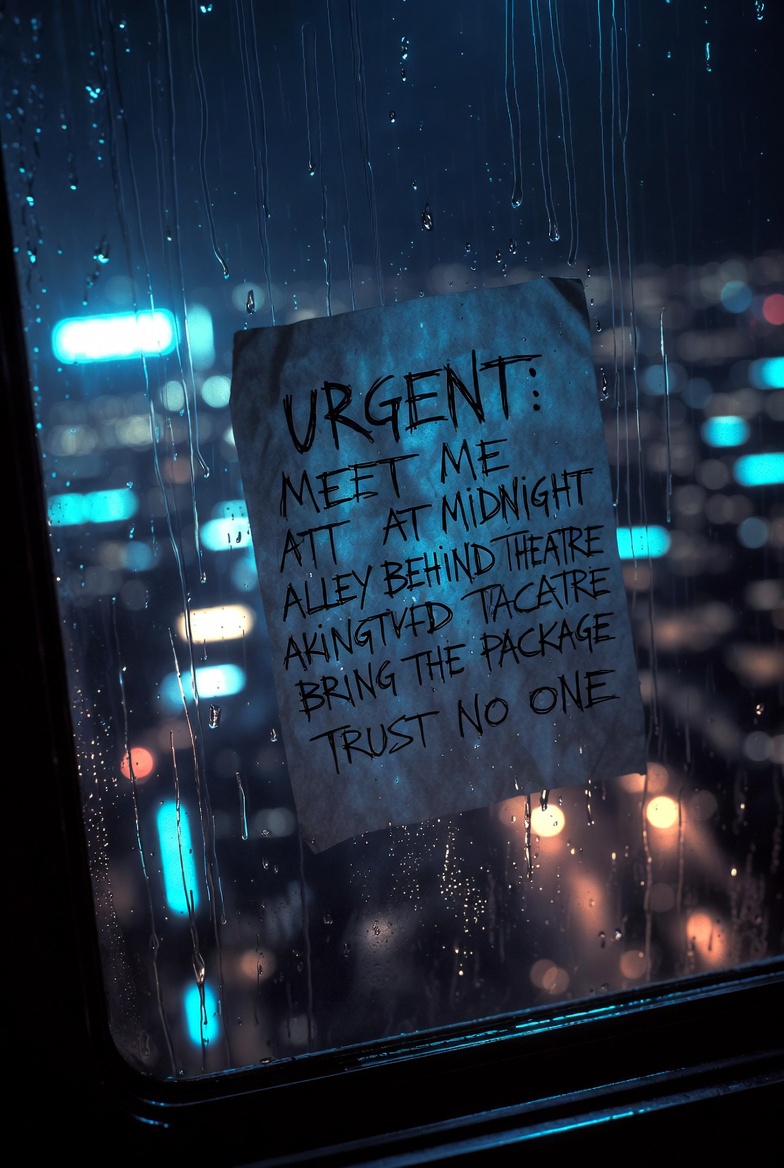 URGENT:
MEET ME
ATT AT MIDNIGHT
ALLEY BEHIND THEATRE
AKINGTVFD TACATRE
BRING THE PACKAGE
TRUST NO ONE